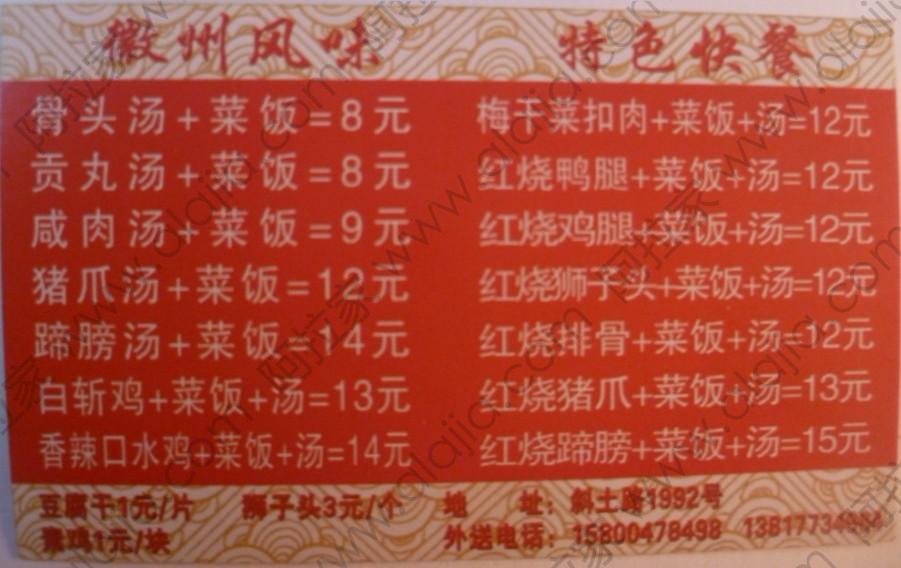 徽州风味
特色快餐
骨头汤+菜饭=8元
贡丸汤+菜饭=8元
咸肉汤+菜饭=9元
猪爪汤+菜饭=12元
蹄膀汤+菜饭=14元
白斩鸡+菜饭+汤=13元
香辣口水鸡+菜饭+汤=14元
梅干菜扣肉+菜饭+汤=12元
红烧鸭腿+菜饭+汤=12元
红烧鸡腿+菜饭+汤=12元
红烧狮子头+菜饭+汤=12元
红烧排骨+菜饭+汤=12元
红烧猪爪+菜饭+汤=13元
红烧蹄膀+菜饭+汤=15元
豆腐干1元/片 狮子头3元/个
素鸡1元/块
地 址：斜土路1992号
外送电话：15800478498
阿拉家 www.alajia.com